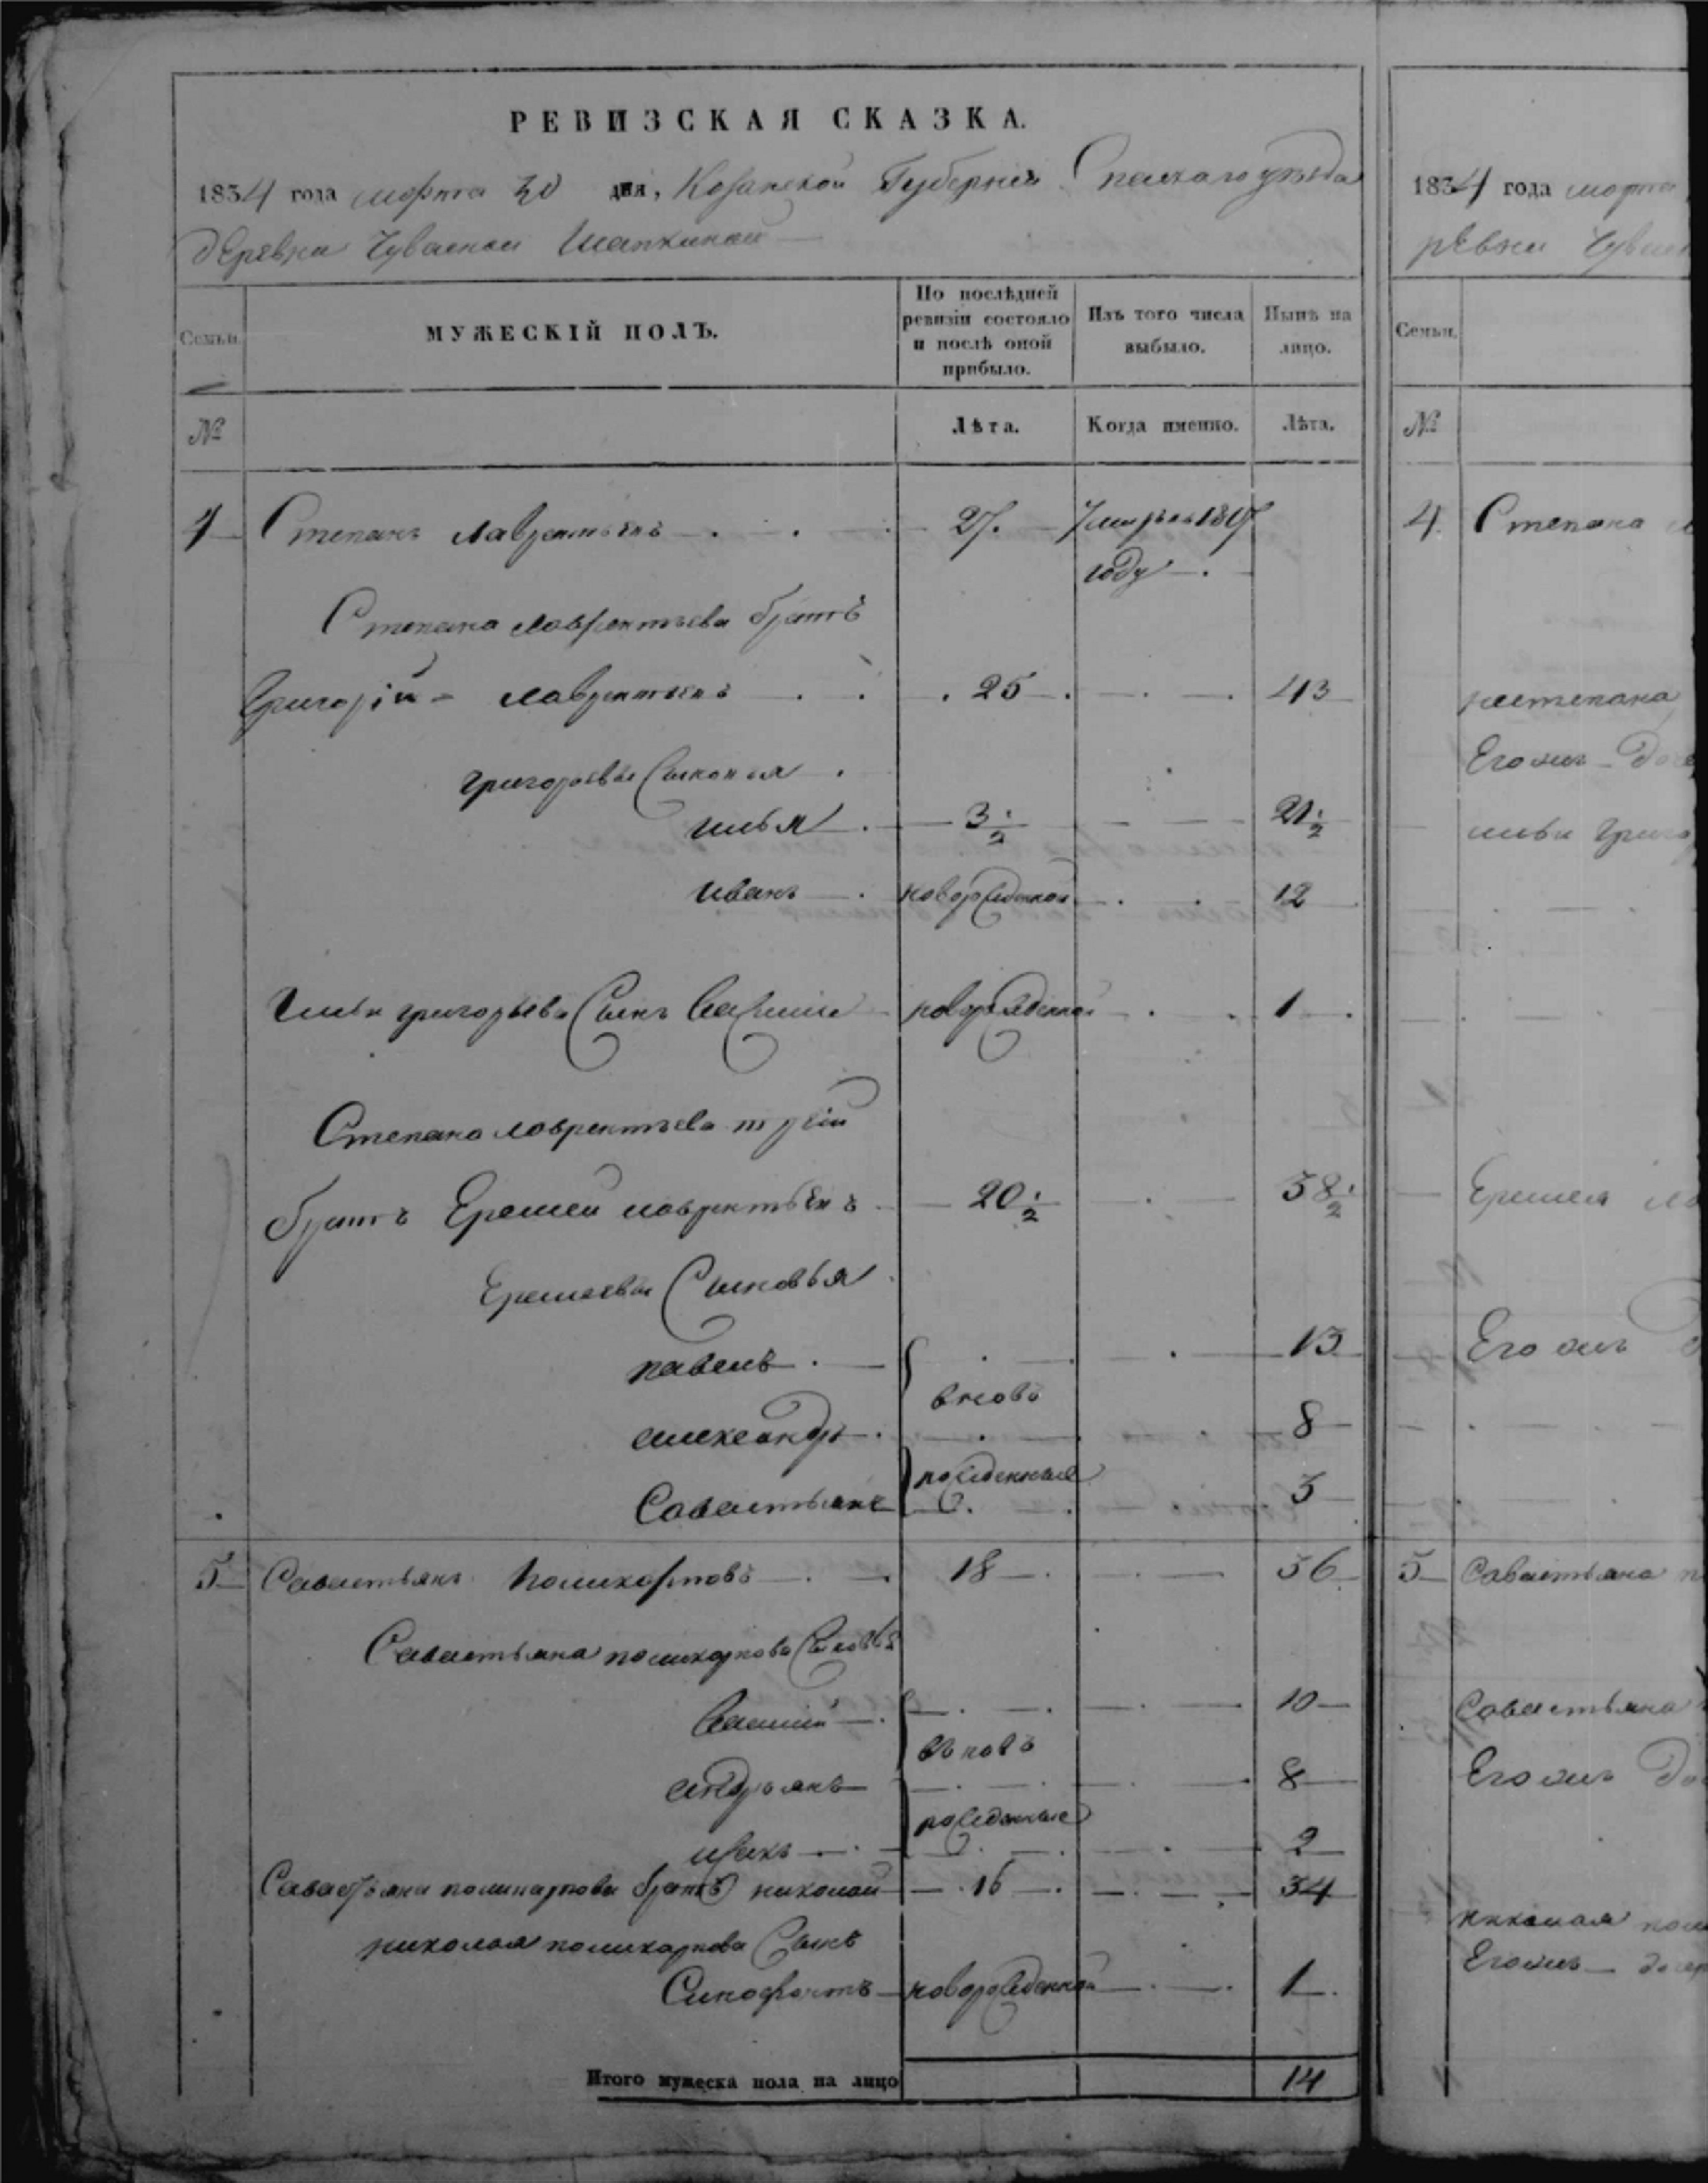 РЕВИЗСКАЯ СКАЗКА.
1834 года марта 30 дня, Казанской Губернии Спаскаго уезда
деревни Чуваской Шапкиной
Семьи.
МУЖЕСКІЙ ПОЛЪ.
По послѣдней ревизіи состояло и послѣ оной прибыло.
Изъ того числа выбыло.
Нынѣ на лицо.
№
Лѣта.
Когда именно.
Лѣта.
4 Степанъ Лаврентьевъ 27. умре въ 1817
году
Степана Лаврентьева братъ
Григорій Лаврентьевъ 25 43
Григорьевы Сыновья
Илья 3 1/2 21 1/2
Иванъ новорожденной 12
Ильи Григорьева Сынъ новорожденной 1
Степана Лаврентьева
братъ Еремей Лаврентьевъ 20 1/2 38 1/2
Еремеевы Сыновья
Павелъ 13
вновь
Александръ 8
рожденные
Савастьянъ 3
5 Савастьянъ Поликарповъ 18 36
Савастьяна Поликарпова Сыновья
Василий 10
въновь
Андреянъ 8
рожденные
2
Савастьяна Поликарпова братъ Николай 16 34
Николая Поликарпова Сынъ
новорожденной 1
Итого мужеска пола на лицо 14
1834 года марта
ревни Чувас
Семьи.
№
4 Степана
Степана
Его же
Ильи Григо
Еремея
Его же
5 Савастьяна
Савастьяна
Его же
Николая
Его же